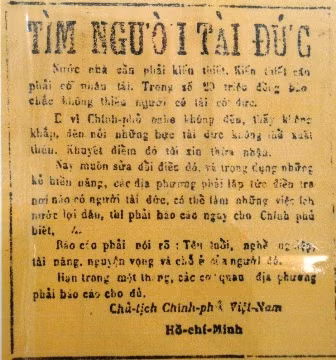 TÌM NGƯỜI TÀI ĐỨC
Nước nhà cần phải kiến thiết. Kiến thiết cần
phải có nhân tài. Trong số 20 triệu đồng bào
chắc không thiếu người có tài có đức.
E vì Chính-phủ nghe không đến, thấy không
khắp, đến nỗi những bực tài đức không thể xuất
thân. Khuyết điểm đó tôi xin thừa nhận.
Nay muốn sửa đổi điều đó, và trọng dụng những
kẻ hiền năng, các địa phương phải lập tức điều tra
nơi nào có người tài đức, có thể làm những việc ích
nước lợi dân, thì phải báo cáo ngay cho Chính phủ
biết.
Báo cáo phải nói rõ : Tên tuổi, nghề nghiệp,
tài năng, nguyện vọng và chỗ ở của người đó.
Hạn trong một tháng, các cơ quan địa phương
phải báo cáo cho đủ.
Chủ-tịch Chính-phủ Việt-Nam
Hồ-chí-Minh